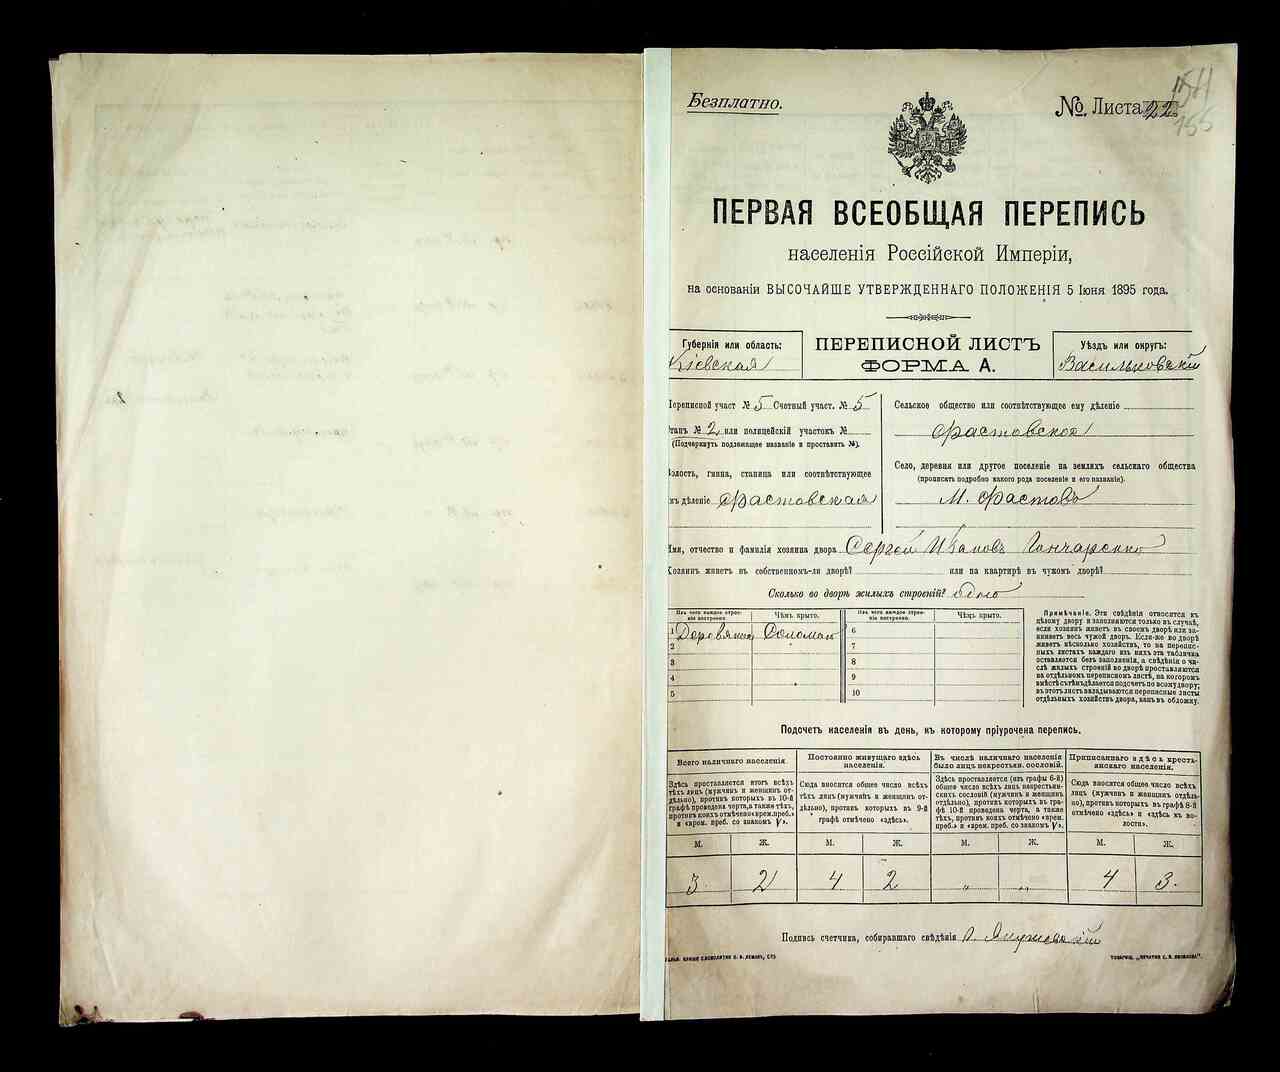 Безплатно.
№ Листа 22
154
155
ПЕРВАЯ ВСЕОБЩАЯ ПЕРЕПИСЬ
населенія Россійской Имперіи,
на основаніи ВЫСОЧАЙШЕ УТВЕРЖДЕННАГО ПОЛОЖЕНІЯ 5 Іюня 1895 года.
Губернія или область:
Кіевская
ПЕРЕПИСНОЙ ЛИСТЪ
ФОРМА А.
Уѣздъ или округъ:
Васильковскій
Переписной участ № 5 Счетный участ. № 5
Станъ № 2 или полицейскій участокъ №
(Подчеркнуть подлежащее названіе и проставить №).
Волость, гмина, станица или соотвѣтствующее
имъ дѣленіе Фастовская
Сельское общество или соотвѣтствующее ему дѣленіе
Фастовское
Село, деревня или другое поселеніе на земляхъ сельскаго общества
(прописать подробно какого рода поселеніе и его названіе).
М. Фастовъ
Имя, отчество и фамилія хозяина двора Сергей Ивановъ Гончаренко
Хозяинъ живетъ въ собственномъ-ли дворѣ? или на квартирѣ въ чужомъ дворѣ?
Сколько во дворѣ жилыхъ строеній? одно
Изъ чего каждое строеніе построено.
Чѣмъ крыто.
Изъ чего каждое строеніе построено.
Чѣмъ крыто.
1 Деревянное Соломою 6
2 7
3 8
4 9
5 10
Примѣчаніе. Эти свѣдѣнія относятся къ
цѣлому двору и заполняются только въ случаѣ,
если хозяинъ живетъ въ своемъ дворѣ или занимаетъ весь чужой дворъ. Если-же во дворѣ
живетъ нѣсколько хозяйствъ, то на переписныхъ листахъ каждаго изъ нихъ эта табличка
оставляется безъ заполненія, а свѣдѣнія о числѣ жилыхъ строеній во дворѣ проставляются
на отдѣльномъ переписномъ листѣ, на которомъ
вмѣстѣ съ тѣмъ дѣлается подсчетъ по всему двору;
въ этотъ листъ вкладываются переписные листы
отдѣльныхъ хозяйствъ двора, какъ въ обложку.
Подсчетъ населенія въ день, къ которому пріурочена перепись.
Всего наличнаго населенія.
Здѣсь проставляется итогъ всѣхъ
тѣхъ лицъ (мужчинъ и женщинъ отдѣльно), противъ которыхъ въ 10-й
графѣ проведена черта, а также тѣхъ,
противъ коихъ отмѣчено «врем. преб.»
и «врем. преб. со знакомъ V».
Постоянно живущаго здѣсь
населенія.
Сюда вносится общее число всѣхъ
тѣхъ лицъ (мужчинъ и женщинъ отдѣльно), противъ которыхъ въ 9-й
графѣ отмѣчено «здѣсь».
Въ числѣ наличнаго населенія
было лицъ некрестьян. сословій.
Здѣсь проставляется (изъ графы 6-й)
общее число всѣхъ лицъ некрестьянскихъ сословій (мужчинъ и женщинъ
отдѣльно), противъ которыхъ въ графѣ 10-й проведена черта, а также
тѣхъ, противъ коихъ отмѣчено «врем.
преб.» и «врем. преб. со знакомъ V».
Приписаннаго здѣсь крестьянскаго населенія.
Сюда вносится общее число всѣхъ
лицъ (мужчинъ и женщинъ отдѣльно), противъ которыхъ въ графѣ 8-й
отмѣчено «здѣсь» и «здѣсь въ волости».
М. Ж. М. Ж. М. Ж. М. Ж.
3 2 4 2 „ „ 4 3.
Подпись счетчика, собиравшаго свѣдѣнія